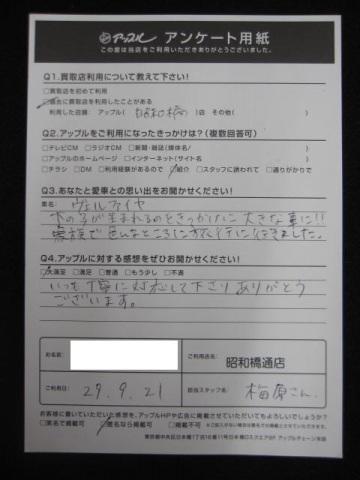 アップル アンケート用紙
この度は当店をご利用いただきありがとうございました。
Q1.買取店利用について教えて下さい!
□買取店を初めて利用
□過去に買取店を利用したことがある
利用した店舗: アップル( 昭和橋 )店 その他( )
Q2.アップルをご利用になったきっかけは?(複数回答可)
□テレビCM □ラジオCM □新聞・雑誌(媒体名/ )
□アップルのホームページ □インターネット(サイト名 )
□チラシ □DM □利用経験があるので □紹介 □スタッフに誘われて □通りがかりで
Q3.あなたと愛車との思い出をお聞かせください!
車名: ヴェルファイヤ
下の子が生まれるのときっかけに大きな車に!!
家族で色んなところに旅行に行きました。
Q4.アップルに対する感想をぜひお聞かせください!
□大満足 □満足 □普通 □もう少し □不満
いつも丁寧に対応して下さりありがとう
ございます。
お名前: ご利用店名: 昭和橋通店
ご利用日: 29.9.21 担当スタッフ名: 梅原さん
お客様に書いていただいた感想を、アップルHPや広告に掲載させていただいてもよろしいでしょうか?
□実名で掲載可 □匿名なら掲載可 □掲載不可
東京都中央区日本橋1丁目16番11号日本橋Dスクエア8F アップルチェーン本部